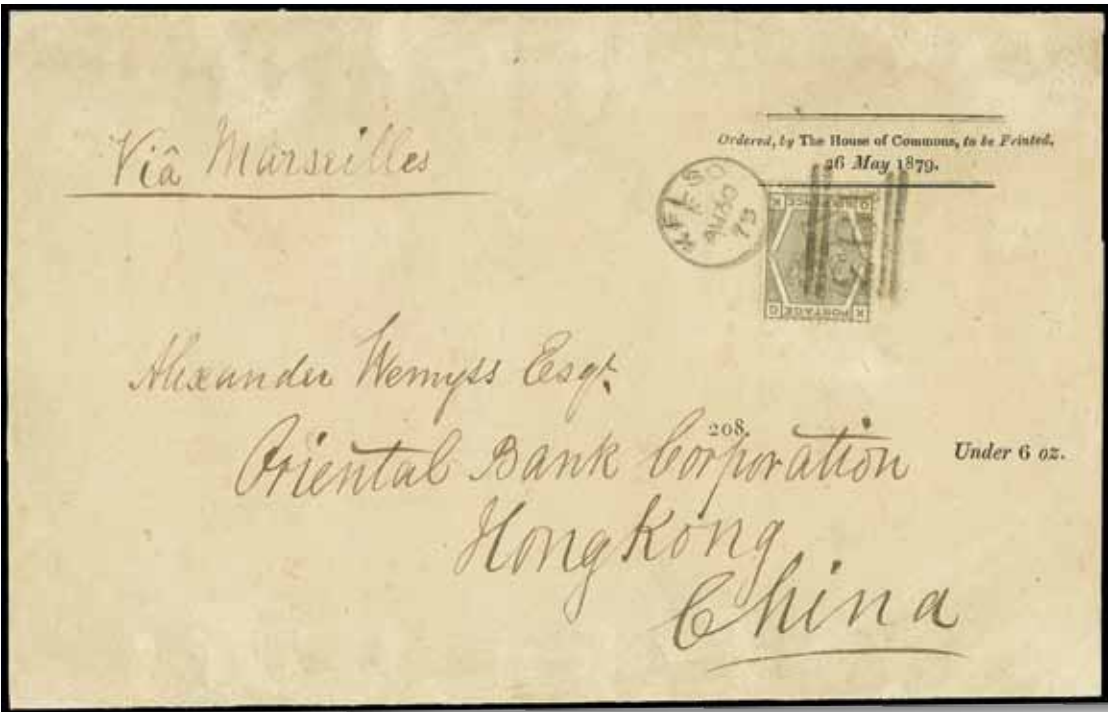 Viâ Marseilles
Ordered, by The House of Commons, to be Printed,
26 May 1879.
KELSO
AU 30
79
POSTAGE
Alexander Wemyss Esqr.
208.
Oriental Bank Corporation
Under 6 oz.
Hong Kong
China